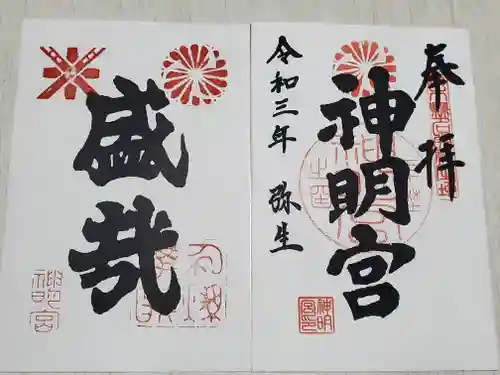 奉拝
神明宮
令和三年 弥生
神明宮印
盛哉
神明宮